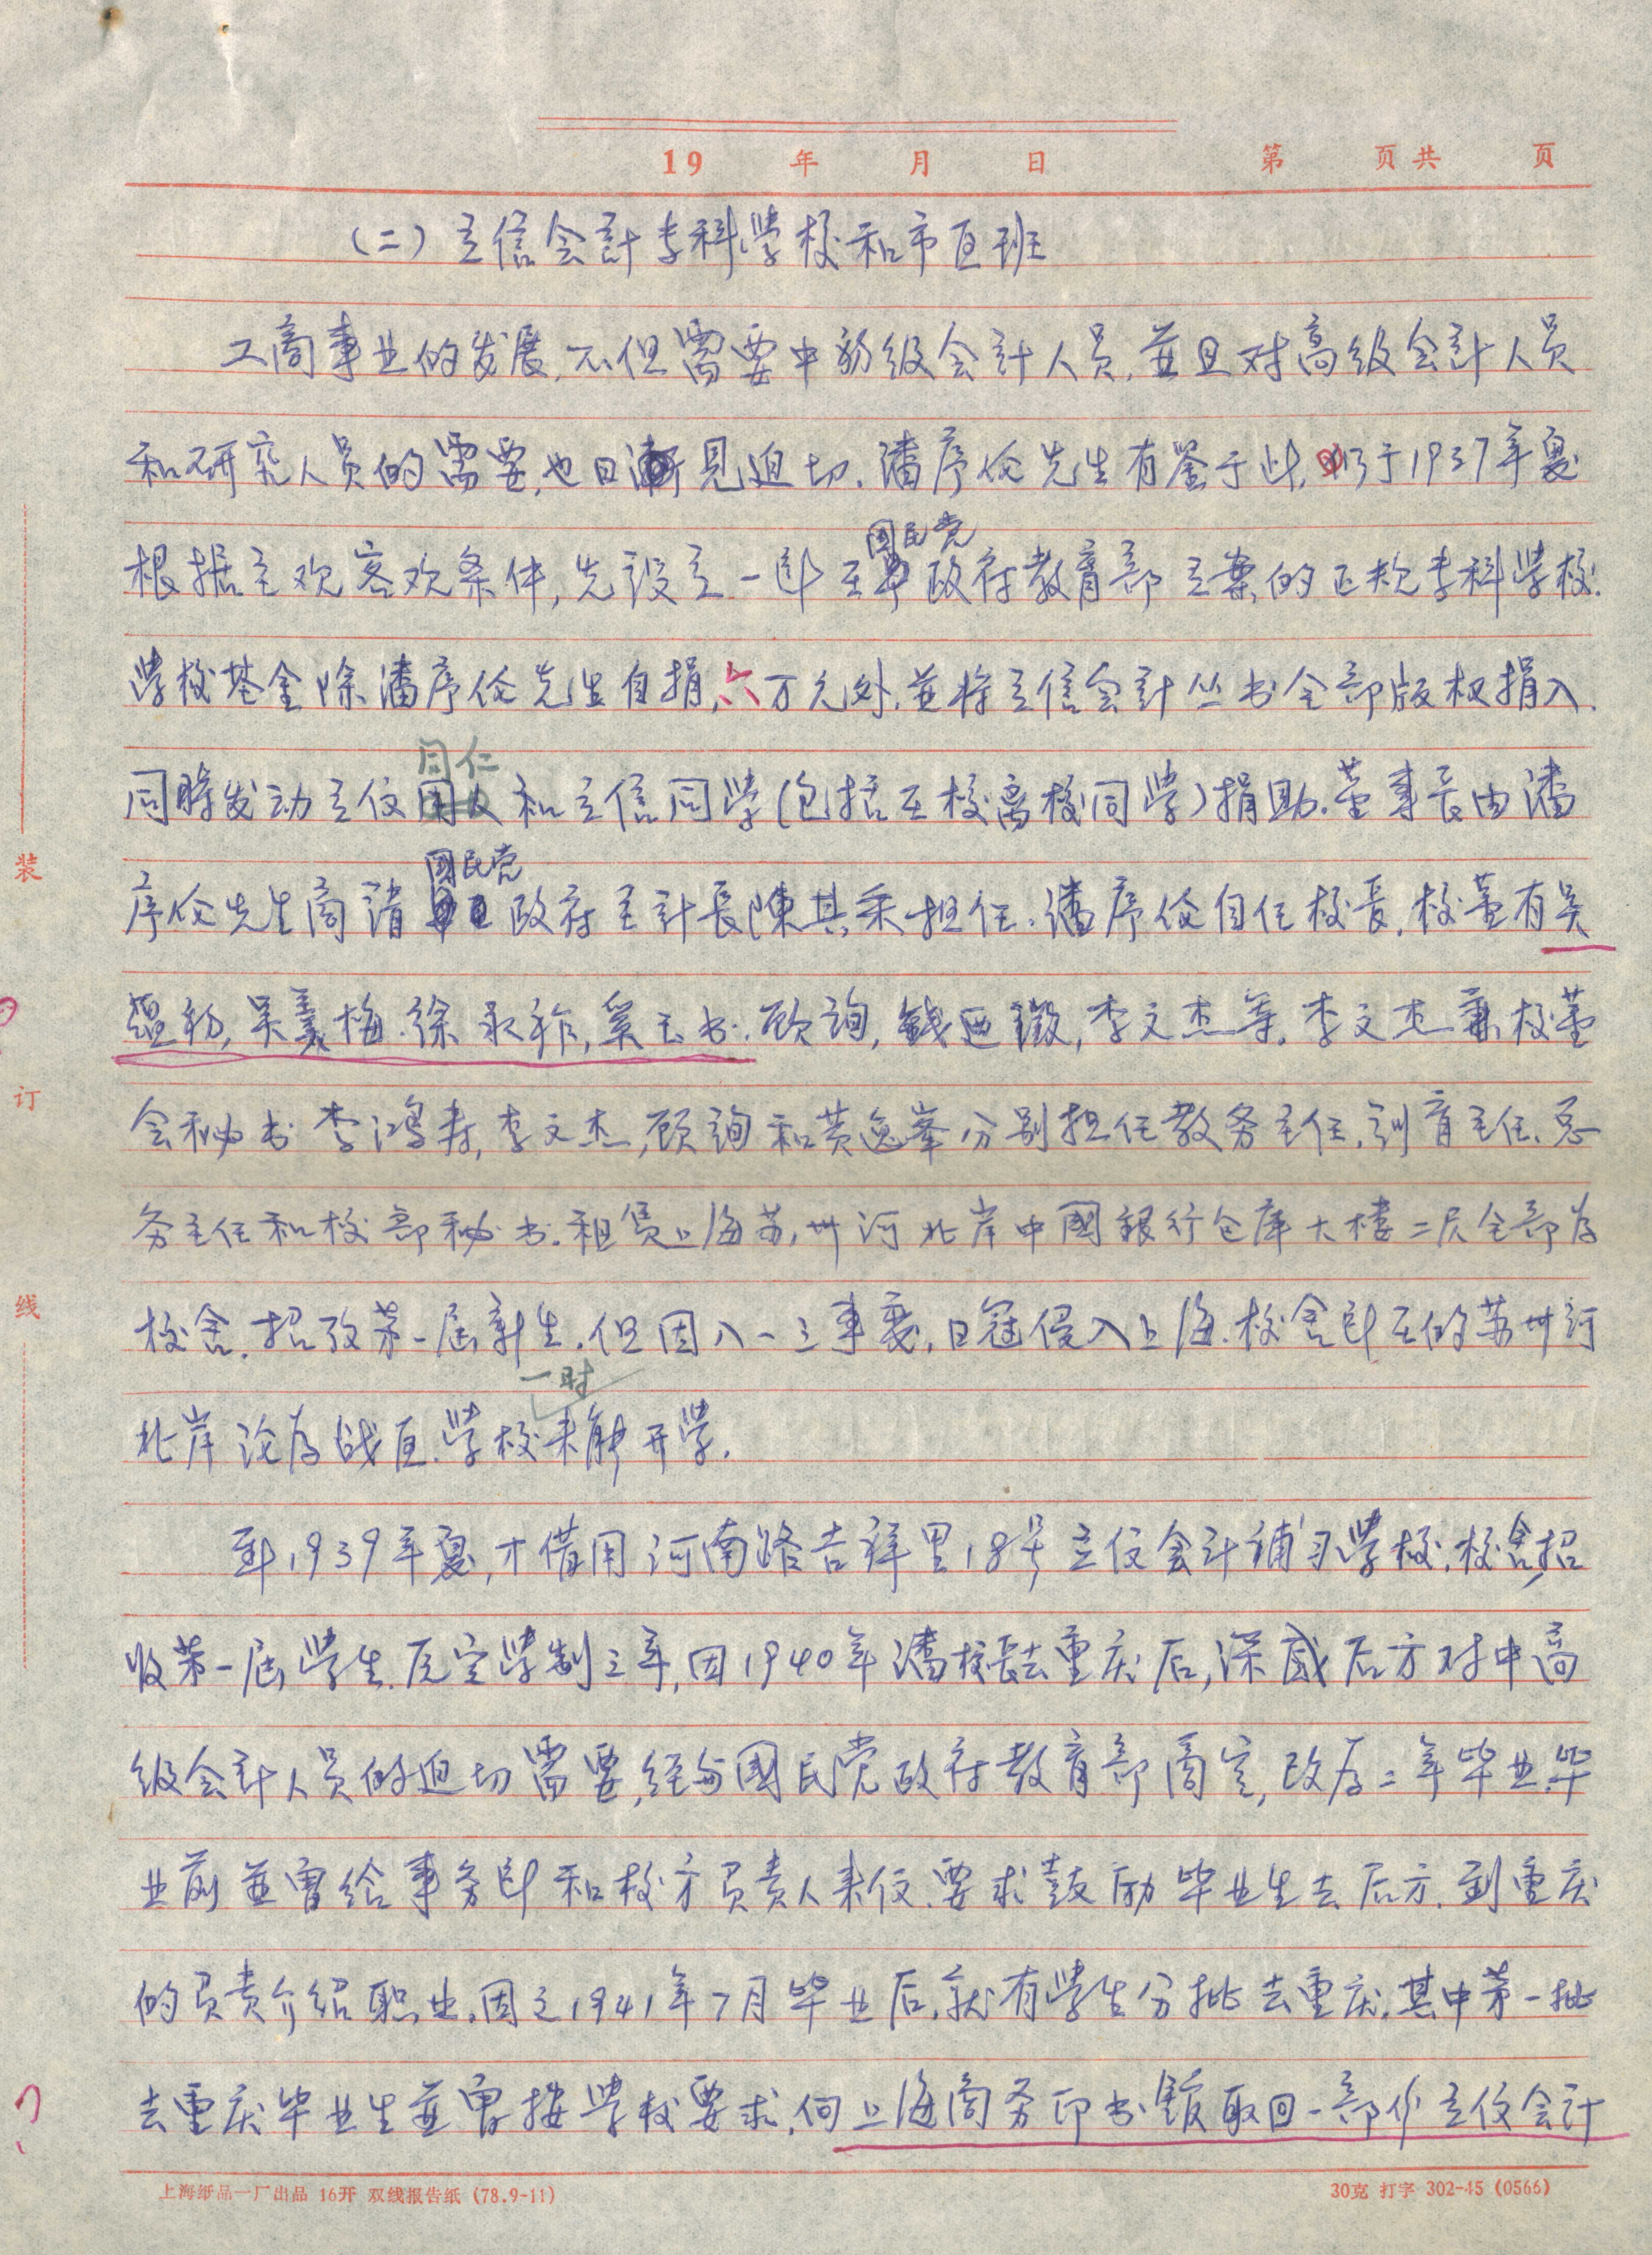 19 年 月 日 第 页共 页
（二）立信会計专科学校和市区班
工商事业的发展，不但需要中初级会計人员，並且对高级会計人员
和研究人员的需要，也日漸见迫切。潘序伦先生有鉴于此，乃于1937年夏
國民党
根据主观客观条件，先设立一所在政府教育部立案的正规专科学校.
学校基金除潘序伦先生自捐六万元外，並将立信会計丛书全部版权捐入.
同仁
同時发动立信和立信同学(包括在校离校同学)捐助.董事長由潘
國民党
序伦先生商请政府主計長陳其采担任.潘序伦自任校長,校董有吴
蕴初,吴羹梅.徐永祚,奚玉书.顾詢,錢迺澂,李文杰等.李文杰兼校董
会秘书 李鴻寿,李文杰,顾詢和黄逸峯分别担任教务主任,訓育主任、总
务主任和校部秘书.租赁上海苏州河北岸中國銀行仓库大楼二层全部为
校舍.招攷第一届新生.但因八一三事变,日寇侵入上海.校舍所在的苏州河
一时
北岸沦为战区.学校未能开学.
到1939年夏,才借用河南路吉祥里18号立信会计補习学校.校舍,招
收第一届学生.原定学制三年,因1940年潘校長去重庆后,深感后方对中高
级会计人员的迫切需要,经与國民党政府教育部商定,改为二年毕业.毕
业前並曾给事务所和校方负责人来信.要求鼓励毕业生去后方.到重庆
的负责介绍职业.因之1941年7月毕业后.就有学生分批去重庆.其中第一批
去重庆毕业生並曾按学校要求,向上海商务印书館取回一部份立信会计
装
订
线
?
上海纸品一厂出品 16开 双线报告纸 (78.9-11)
30克 打字 302-45 (0566)